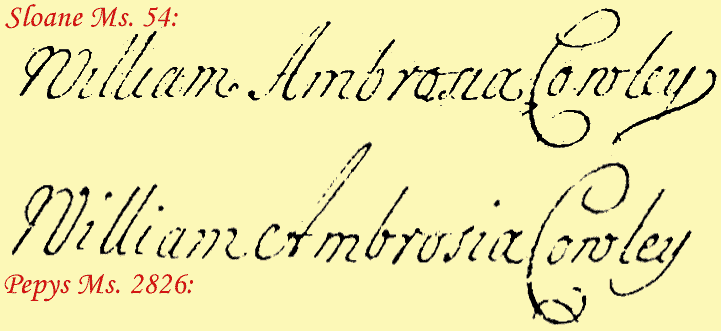 Sloane Ms. 54:
William Ambrosia Cowley
William Ambrosia Cowley
Pepys Ms. 2826: